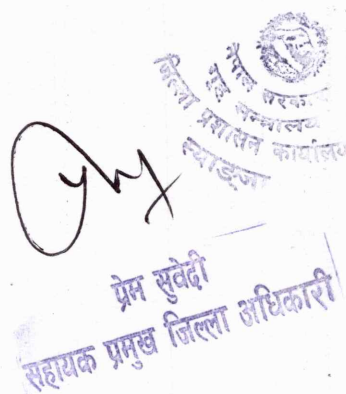 नेपाल सरकार
गृह मन्त्रालय
जिल्ला प्रशासन कार्यालय
स्याङ्जा
प्रेम सुवेदी
सहायक प्रमुख जिल्ला अधिकारी